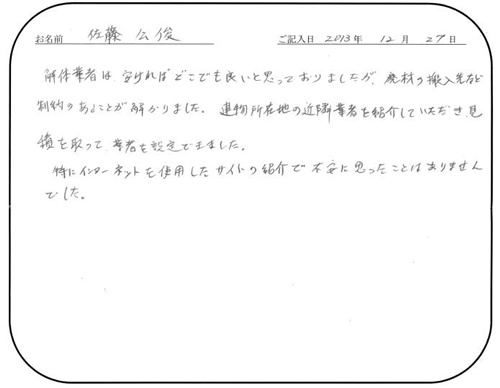 お名前 佐藤 公俊 ご記入日 2013年 12月 27日
解体業者は、安ければどこでも良いと思っておりましたが、廃材の搬入先など
制約のあることが解かりました。建物所在地の近隣業者を紹介していただき、見
積を取って、業者を設定できました。
特にインターネットを使用したサイトの紹介で不安に思ったことはありません
でした。